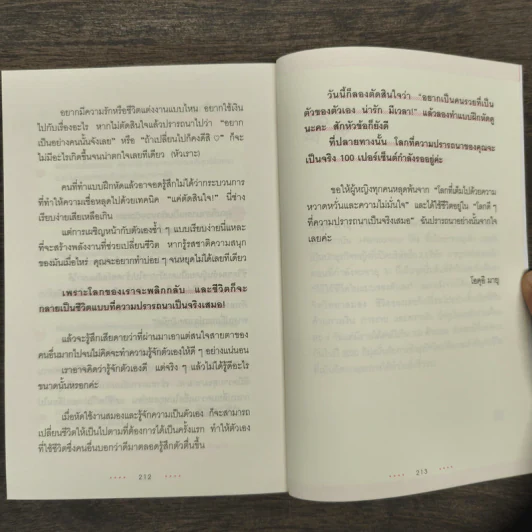 อยากมีความรักหรือชีวิตแต่งงานแบบไหน อยากใช้เงิน
ไปกับเรื่องอะไร หากไม่ตัดสินใจแล้วปรารถนาไปว่า "อยาก
เป็นอย่างคนนั้นจังเลย" หรือ "ถ้าเปลี่ยนไปก็คงดีสิ ♡" ก็จะ
ไม่มีอะไรเกิดขึ้นจนน่าตกใจเลยทีเดียว (หัวเราะ)
คนที่ทำแบบฝึกหัดแล้วอาจอดรู้สึกไม่ได้ว่ากระบวนการ
ที่ทำให้ความเชื่อหลุดไปด้วยเทคนิค "แค่ตัดสินใจ!" นี่ช่าง
เรียบง่ายเสียเหลือเกิน
แต่การเผชิญหน้ากับตัวเองซ้ำ ๆ แบบเรียบง่ายนี่แหละ
ที่จะสร้างพลังงานที่ช่วยเปลี่ยนชีวิต หากรู้รสชาติความสนุก
ของมันเมื่อไหร่ คุณจะอยากทำบ่อย ๆ จนหยุดไม่ได้เลยทีเดียว
เพราะโลกของเราจะพลิกกลับ และชีวิตก็จะ
กลายเป็นชีวิตแบบที่ความปรารถนาเป็นจริงเสมอ!
แล้วจะรู้สึกเสียดายว่าที่ผ่านมาเอาแต่สนใจสายตาของ
คนอื่นมากไปจนไม่คิดจะทำความรู้จักตัวเองให้ดี ๆ อย่างแน่นอน
เราอาจคิดว่ารู้จักตัวเองดี แต่จริง ๆ แล้วไม่ได้รู้ดีอะไร
ขนาดนั้นหรอกค่ะ
เมื่อหัดใช้งานสมองและรู้จักความเป็นตัวเอง ก็จะสามารถ
เปลี่ยนชีวิตให้เป็นไปตามที่ต้องการได้เป็นครั้งแรก ทำให้ตัวเอง
ที่ใช้ชีวิตซึ่งคนอื่นบอกว่าดีมาตลอดรู้สึกตัวตื่นขึ้น
212
วันนี้ก็ลองตัดสินใจว่า "อยากเป็นคนรวยที่เป็น
ตัวของตัวเอง น่ารัก มีเวลา!" แล้วลองทำแบบฝึกหัดดู
นะคะ สักหัวข้อก็ยังดี
ที่ปลายทางนั้น โลกที่ความปรารถนาของคุณจะ
เป็นจริง 100 เปอร์เซ็นต์กำลังรออยู่ค่ะ
ขอให้ผู้หญิงทุกคนหลุดพ้นจาก "โลกที่เต็มไปด้วยความ
หวาดหวั่นและความไม่มั่นใจ" และได้ใช้ชีวิตอยู่ใน "โลกดี ๆ
ที่ความปรารถนาเป็นจริงเสมอ" ฉันปรารถนาอย่างนั้นจากใจ
เลยค่ะ
โฮคุอิ มายุ
213